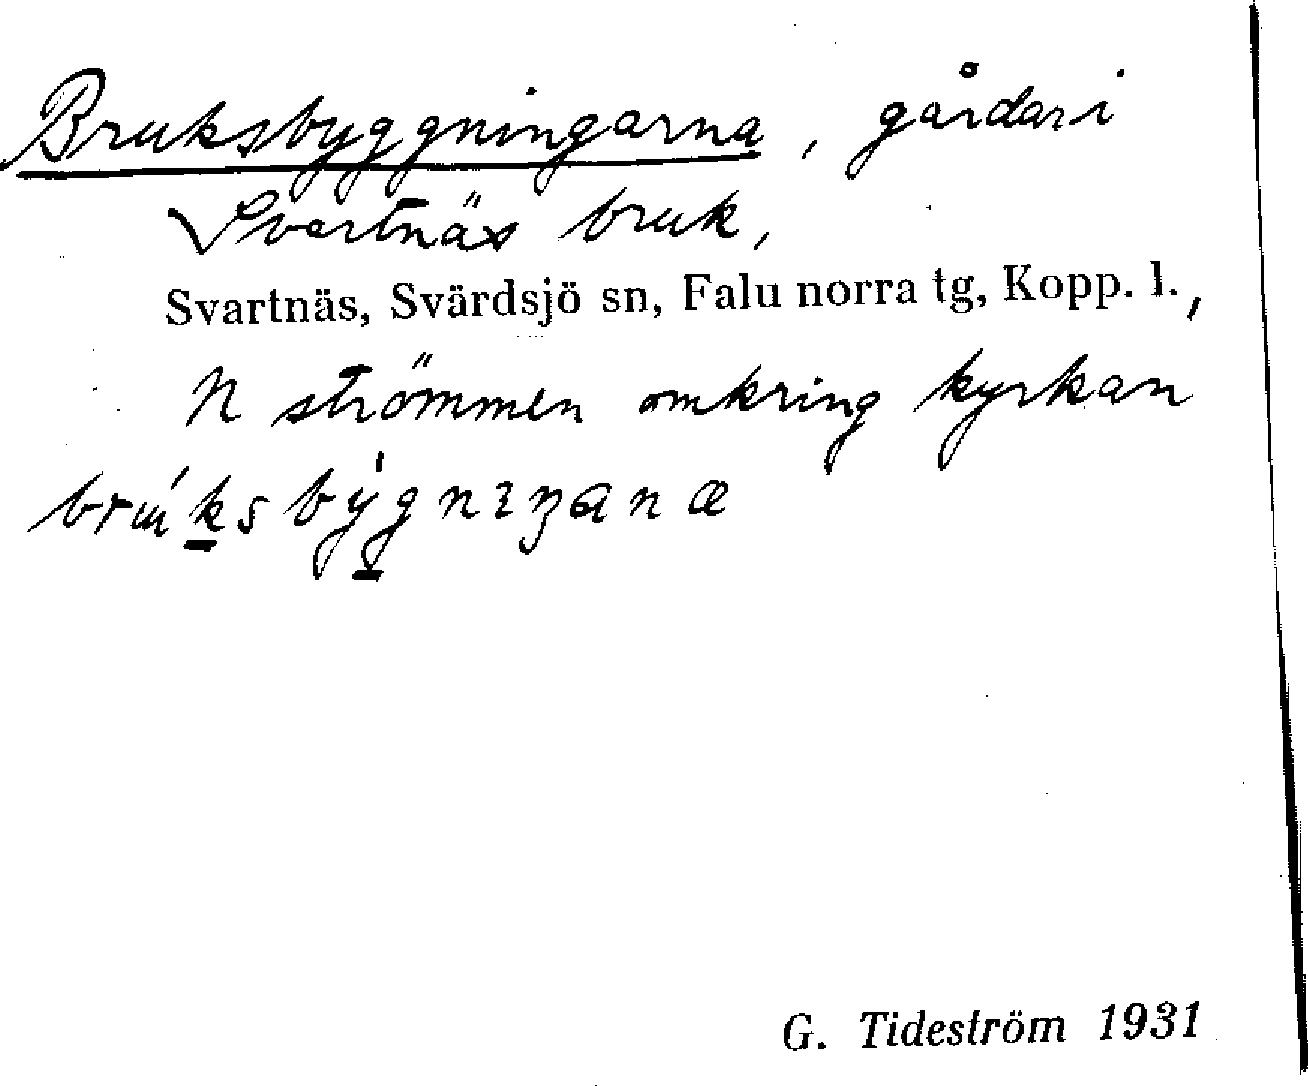 Bruksbyggningarna, gårdar i
Svartnäs bruk,
Svartnäs, Svärdsjö sn, Falu norra tg, Kopp. l.,
N strömmen omkring kyrkan
G. Tideström 1931